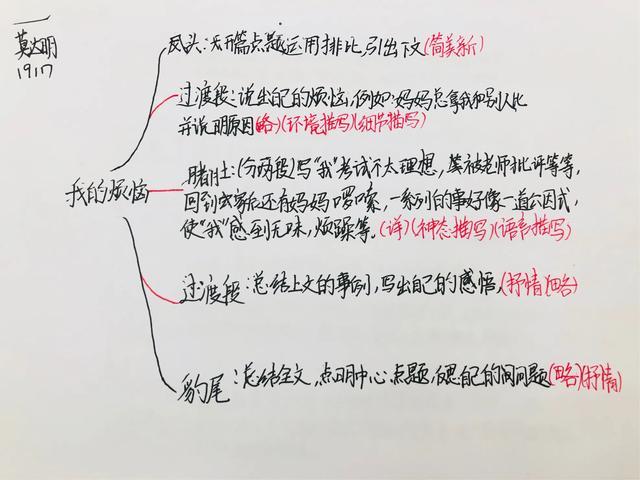 莫达明
1917
凤头:开篇点题运用排比,引出下文(简美新)
过渡段:说出自己的烦恼,例如:妈妈总拿我和别人比
并说明原因(略)(环境描写)(细节描写)
我的烦恼
猪肚:(分两段)写“我”考试不太理想,被老师批评等等,
回到家后还有妈妈啰嗦,一系列的事好像一道公因式,
使“我”感到无味,烦躁等。(详)(神态描写)(语言描写)
过渡段:总结上文的事例,写出自己的感悟,(抒情)(略)
豹尾:总结全文,点明中心,点题,反思自己的问题(略)(抒情)